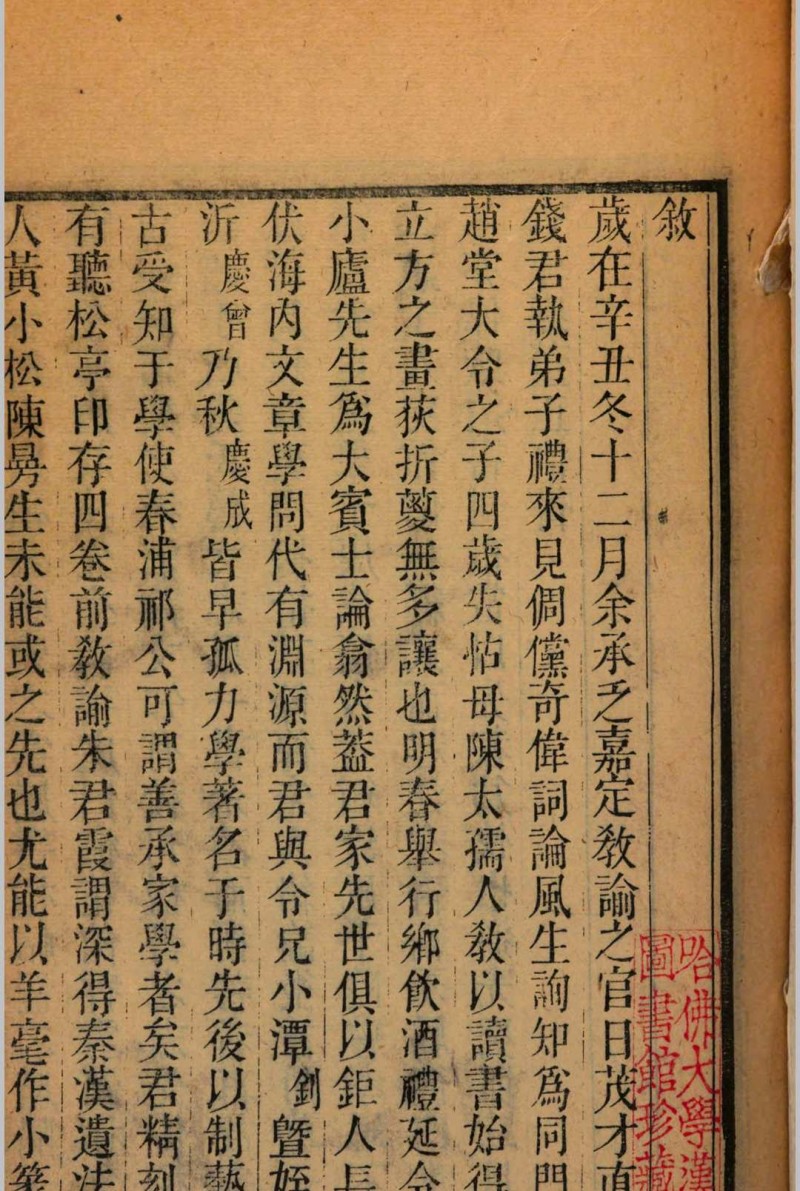 敘
歲在辛丑冬十二月余承乏嘉定敎諭之官日茂才直
錢君執弟子禮來見倜儻奇偉詞論風生詢知爲同門
趙堂大令之子四歲失怙母陳太孺人敎以讀書始得
立方之畫荻折葼無多讓也明春舉行鄉飮酒禮延令
小廬先生爲大賓士論翕然葢君家先世俱以鉅人長
伏海內文章學問代有淵源而君與令兄小潭釗曁姪
沂慶曾乃秋慶成皆早孤力學著名于時先後以制藝
古受知于學使春浦祁公可謂善承家學者矣君精刻
有聽松亭印存四卷前敎諭朱君霞謂深得秦漢遺法
人黃小松陳曼生未能或之先也尤能以羊毫作小篆
哈佛大學漢
圖書館珍藏